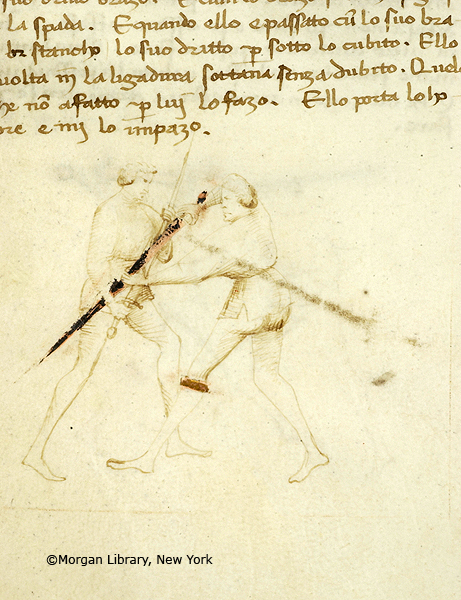 la spada. E quando ello e passato cū lo suo bra
br stancho lo suo dritto ꝑ sotto lo cubito. Ello
volta in la ligadura sottana senza dubito. Quel
he nō a fatto ꝑ lui lo fazo. Ello porta lo
ore e mi lo impazo.
©Morgan Library, New York